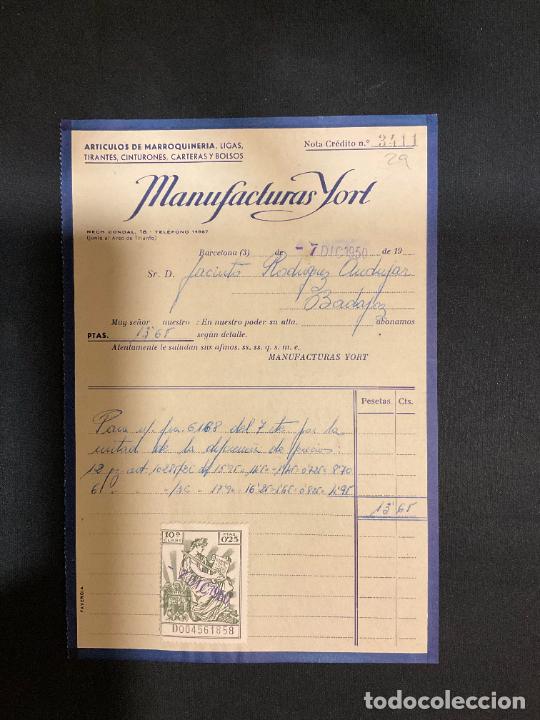 ARTICULOS DE MARROQUINERIA, LIGAS,
TIRANTES, CINTURONES, CARTERAS Y BOLSOS
Nota Crédito n.º 3411
29
Manufacturas Yort
RECH CONDAL, 18 - TELÉFONO 11967
(junto al Arco de Triunfo)
Barcelona (3) de - 7 DIC 1950 de 19
Sr. D. Jacinto Rodriguez Andujar
Badajoz
Muy señor nuestro: En nuestro poder su atta. abonamos
PTAS. 13'65 según detalle.
Atentamente le saludan sus afmos. ss. ss. q. s. m. e.
MANUFACTURAS YORT
Pesetas Cts.
Para s/ fra. 6168 del 7 cte por la
mitad de la diferencia de precios:
12 pz art.
13'65
10ª CLASE PTAS 0'25
7 DIC 1950
D004561858
FAVENCIA
todocoleccion
todocoleccion.net